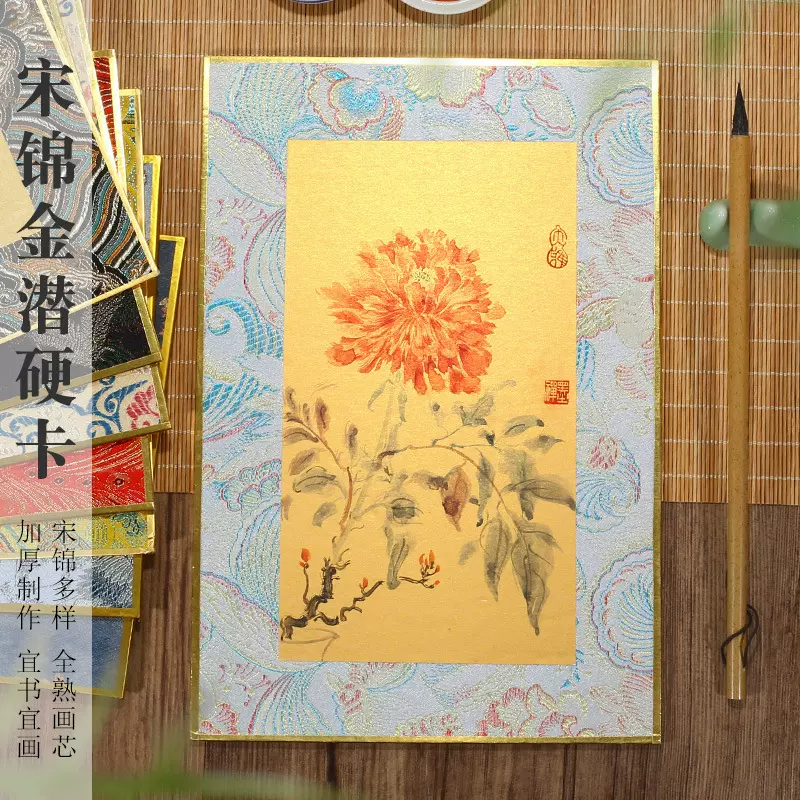 宋锦金潜硬卡
宋锦多样 全熟画芯
加厚制作 宜书宜画